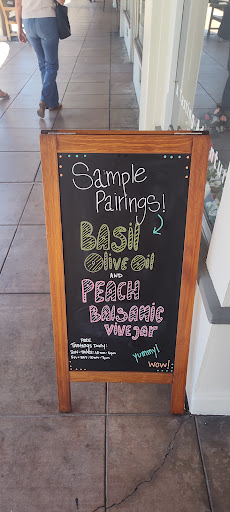 Sample
Pairings!
BASIL
Olive Oil
AND
PEACH
BALSAMIC
VINEJAR
FREE
Tastings Daily!
yummy!
WOW!